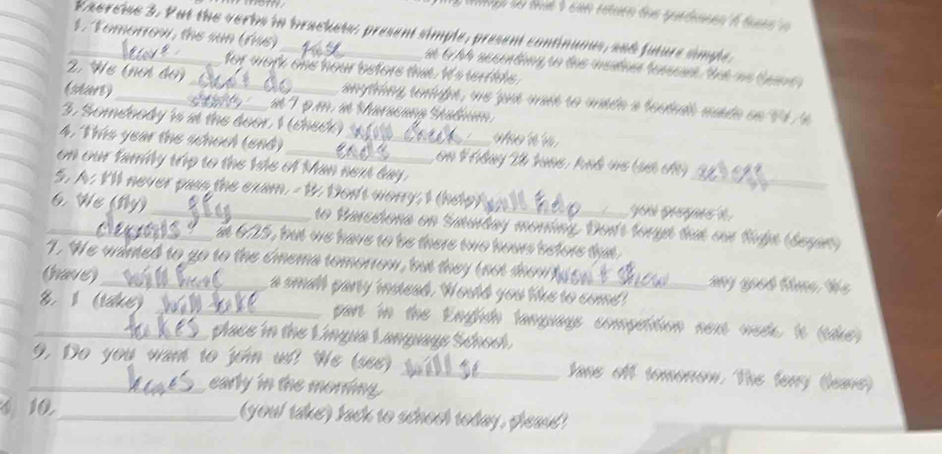 Exercise 3. Put the verbs in brackets: present simple, present continuous, and future simple.
1. Tomorrow, the sun (rise) at 6 according to the weather forecast. But we (leave)
leave for work one hour before that. It's terrible.
2. We (not do) don't do anything tonight, we just want to watch a football match on TV. It
(start) starts at 7 p.m. at Maracany Stadium.
3. Somebody is at the door, I (check) will check who it is.
4. This year the school (end) ends on Friday 28 June. And we (set off) set off
on our family trip to the Isle of Man next day.
5. A: I'll never pass the exam. - B: Don't worry, I (help) will help you prepare it.
6. We (fly) fly to Barcelona on Saturday morning. Don't forget that our flight (depart)
departs at 6:25, but we have to be there two hours before that.
7. We wanted to go to the cinema tomorrow, but they (not show) won't show any good films. We
(have) will have a small party instead. Would you like to come?
8. I (take) will take part in the English language competition next week. It (take)
takes place in the Lingua Language School.
9. Do you want to join us? We (see) will se Jane off tomorrow. The ferry (leave)
early in the morning.
10. (you/ take) back to school today, please?